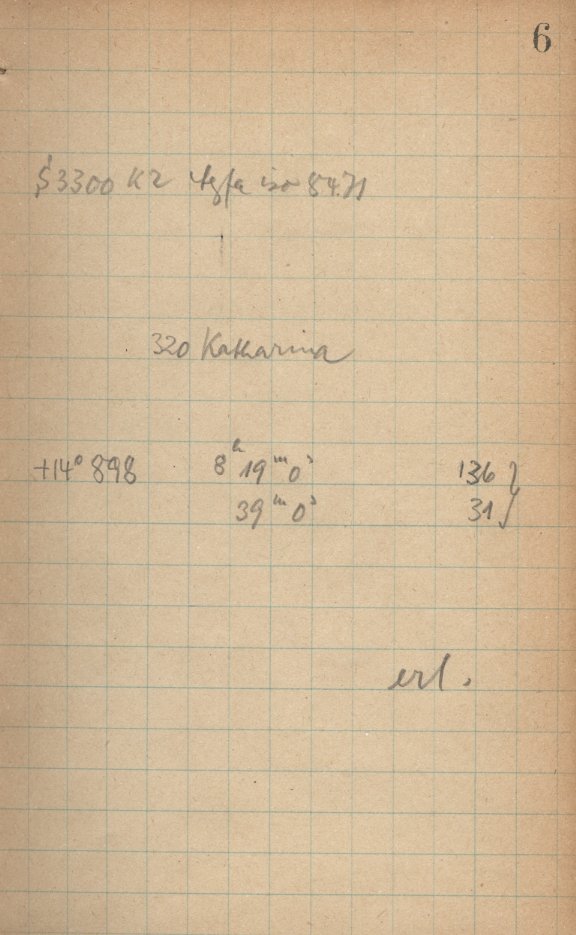 6
S 3300 K2 Agfa iso 84.71
320 Katharina
+14° 898 8h 19m 0s 136
39m 0s 31
erl.